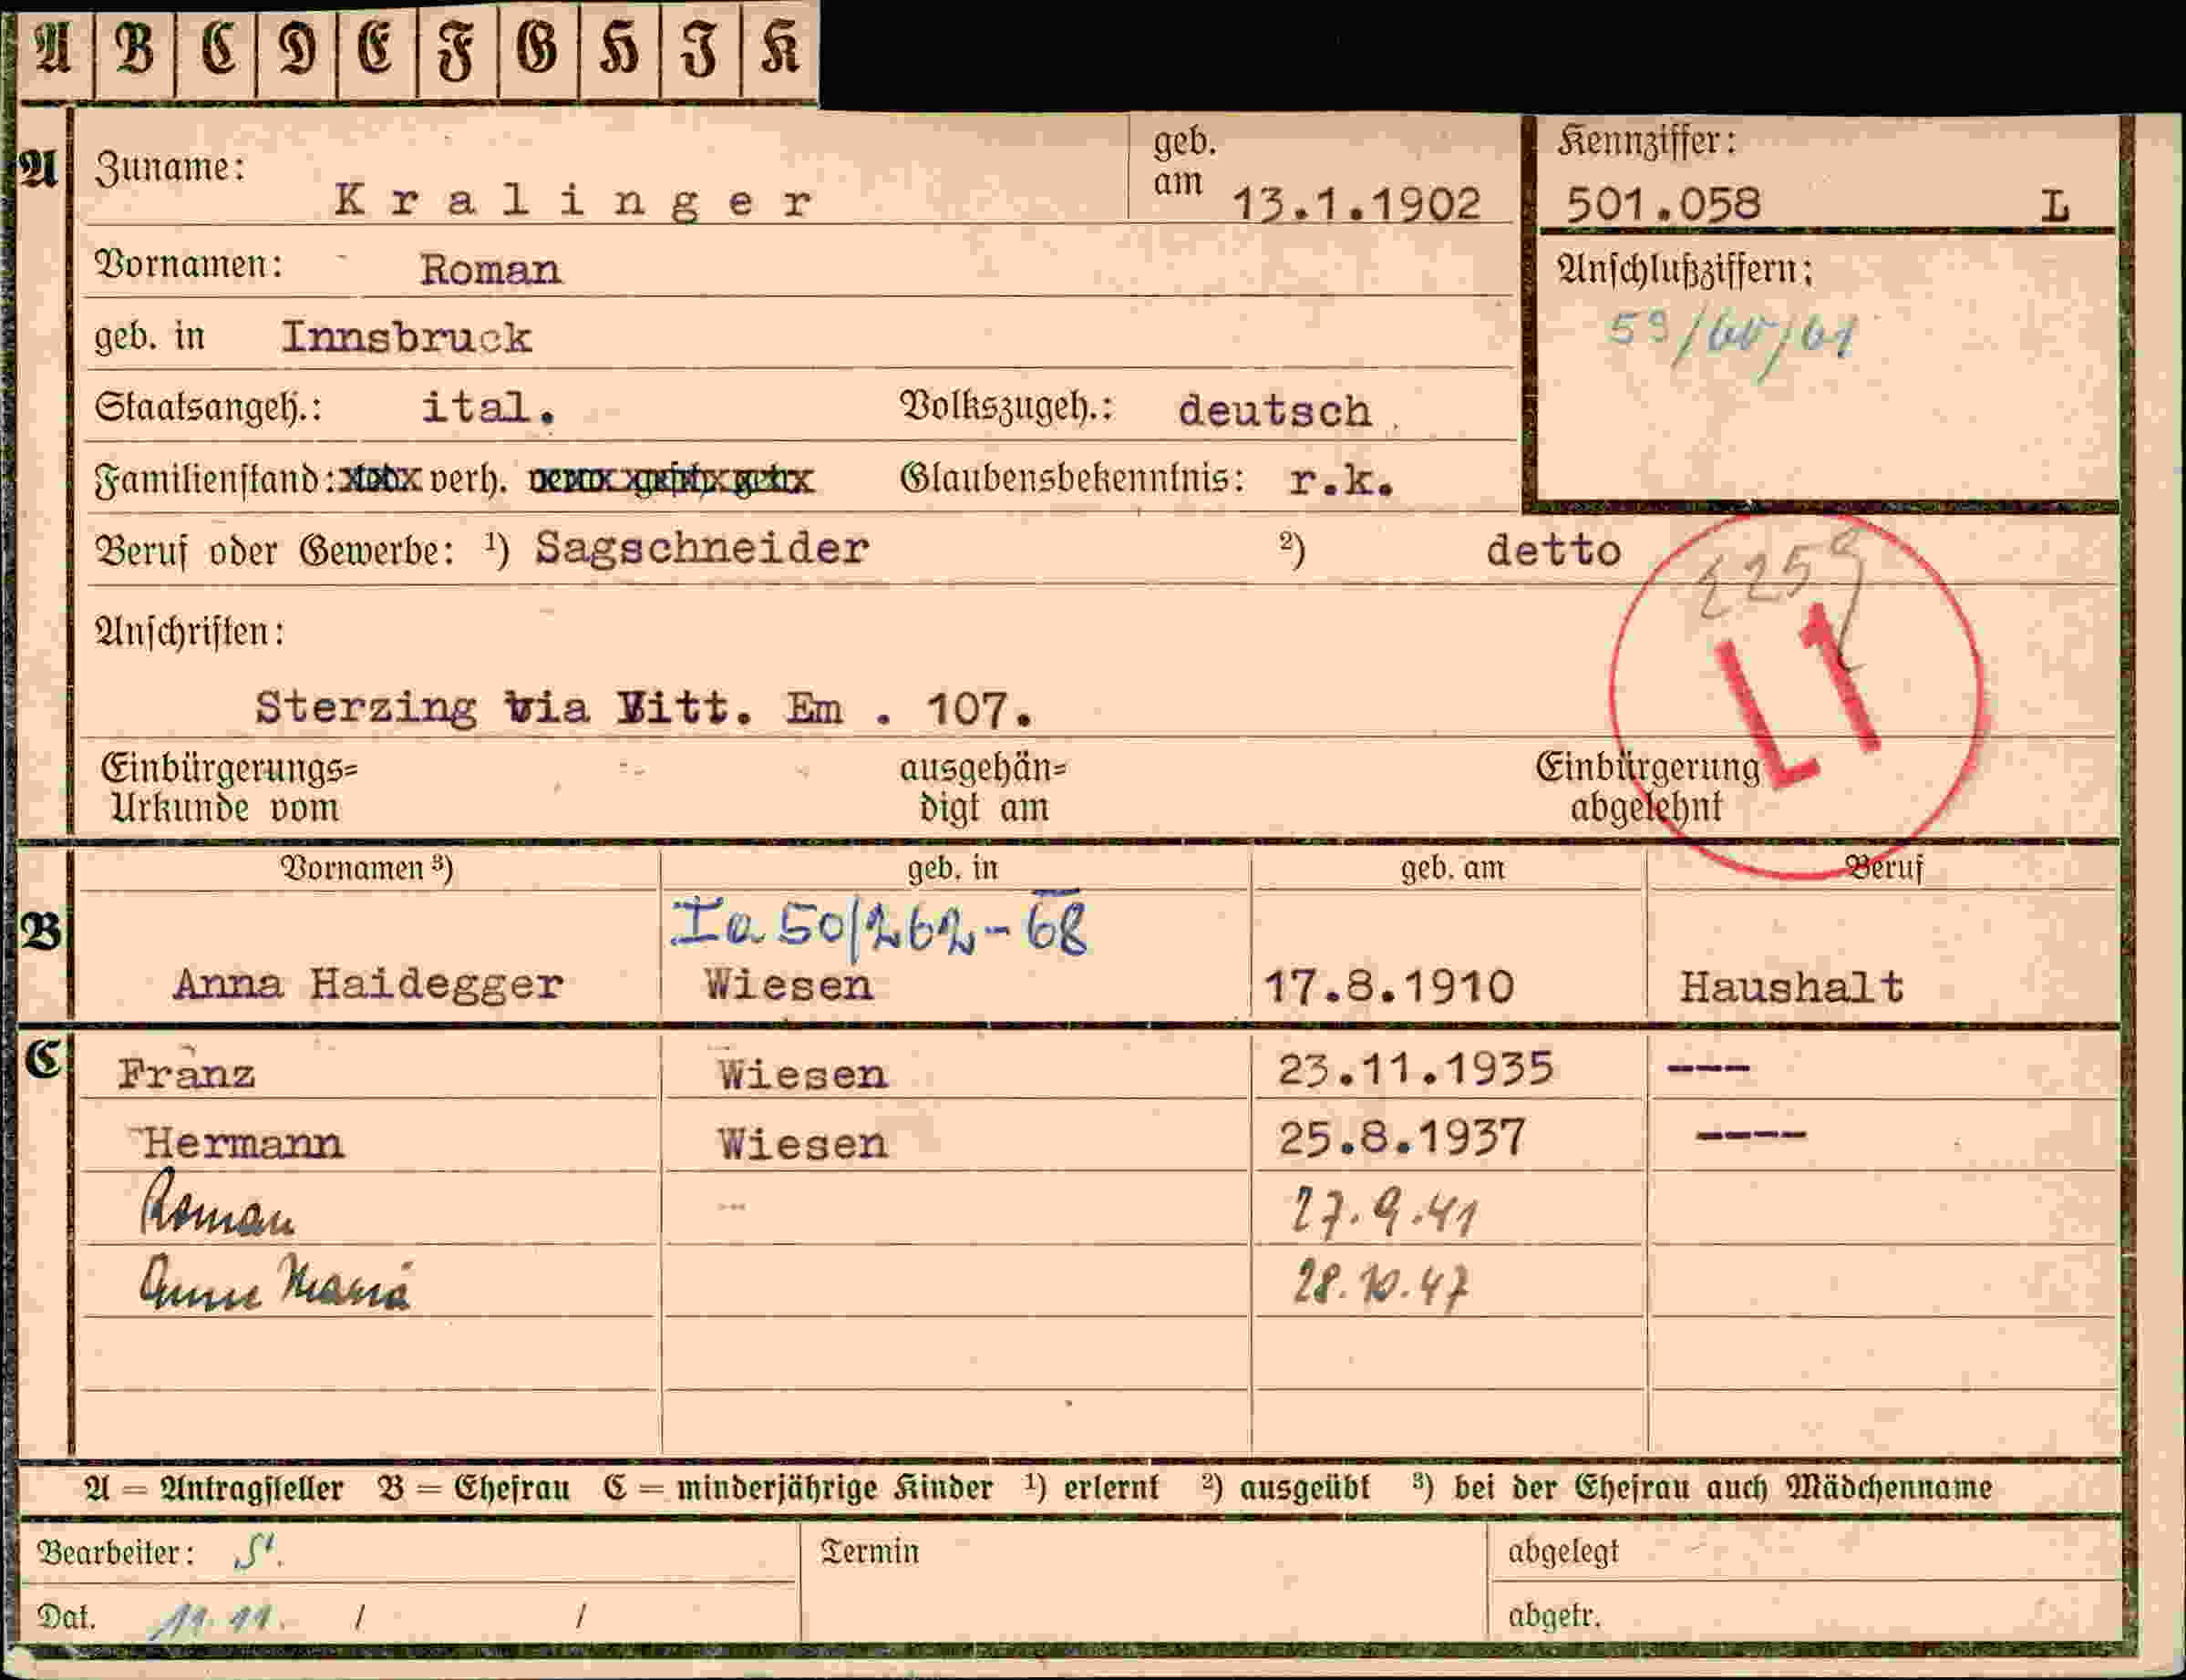 A B C D E F G H I K
A Zuname: Kralinger geb. am 13.1.1902 Kennziffer: 501.058 L
Vornamen: Roman Anschlußziffern:
59/60/61
geb. in Innsbruck
Staatsangeh.: ital. Volkszugeh.: deutsch
Familienstand: verh. Glaubensbekenntnis: r.k.
Beruf oder Gewerbe: ¹) Sagschneider ²) detto
Anschriften:
L1
Sterzing via Vitt. Em . 107.
Einbürgerungs= ausgehän= Einbürgerung
Urkunde vom digt am abgelehnt
Vornamen ³) geb. in geb. am Beruf
B Ia 50/262-68
Anna Haidegger Wiesen 17.8.1910 Haushalt
C Franz Wiesen 23.11.1935 ---
Hermann Wiesen 25.8.1937 ----
Roman 27.9.41
Anna Maria 28.10.47
A = Antragsteller B = Ehefrau C = minderjährige Kinder ¹) erlernt ²) ausgeübt ³) bei der Ehefrau auch Mädchenname
Bearbeiter: St. Termin abgelegt
Dat. 11.11. / / abgetr.